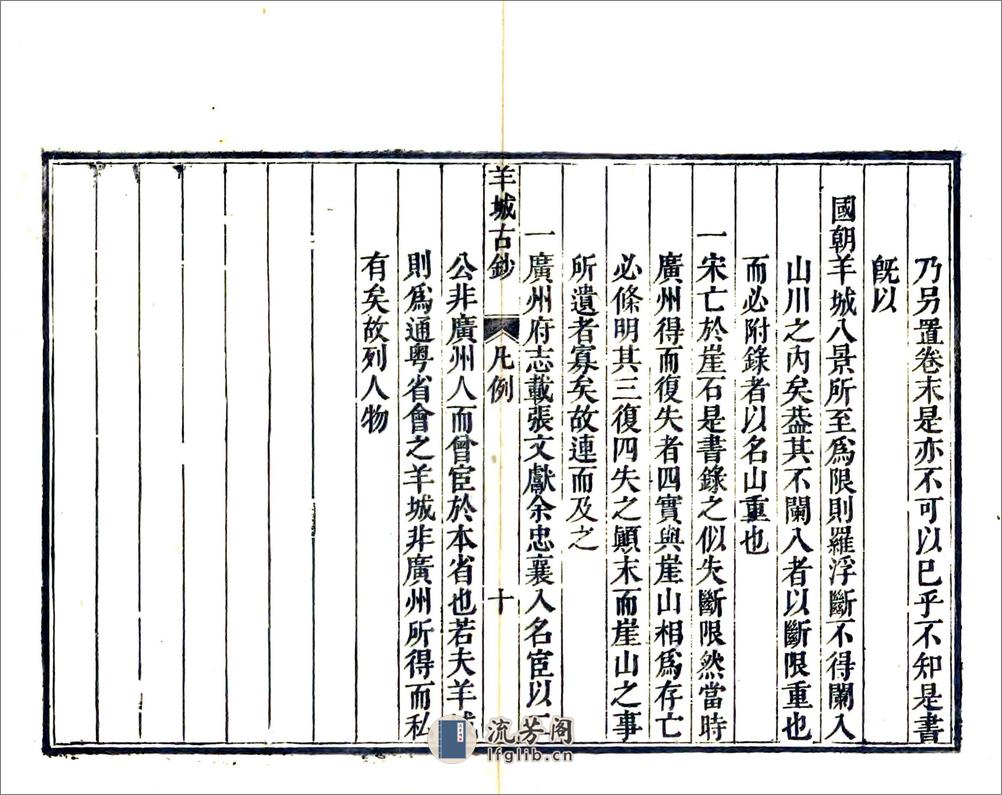 乃另置卷末是亦不可以已乎不知是書
旣以
國朝羊城八景所至爲限則羅浮斷不得闌入
山川之內矣葢其不闌入者以斷限重也
而必附錄者以名山重也
一宋亡於崖石是書錄之似失斷限然當時
廣州得而復失者四實與崖山相爲存亡
必條明其三復四失之顚末而崖山之事
所遺者寡矣故連而及之
羊城古鈔 凡例 十
一廣州府志載張文獻余忠襄入名宦以
公非廣州人而曾宦於本省也若夫羊
則爲通粵省會之羊城非廣州所得而私
有矣故列人物
流芳阁
lfglib.cn